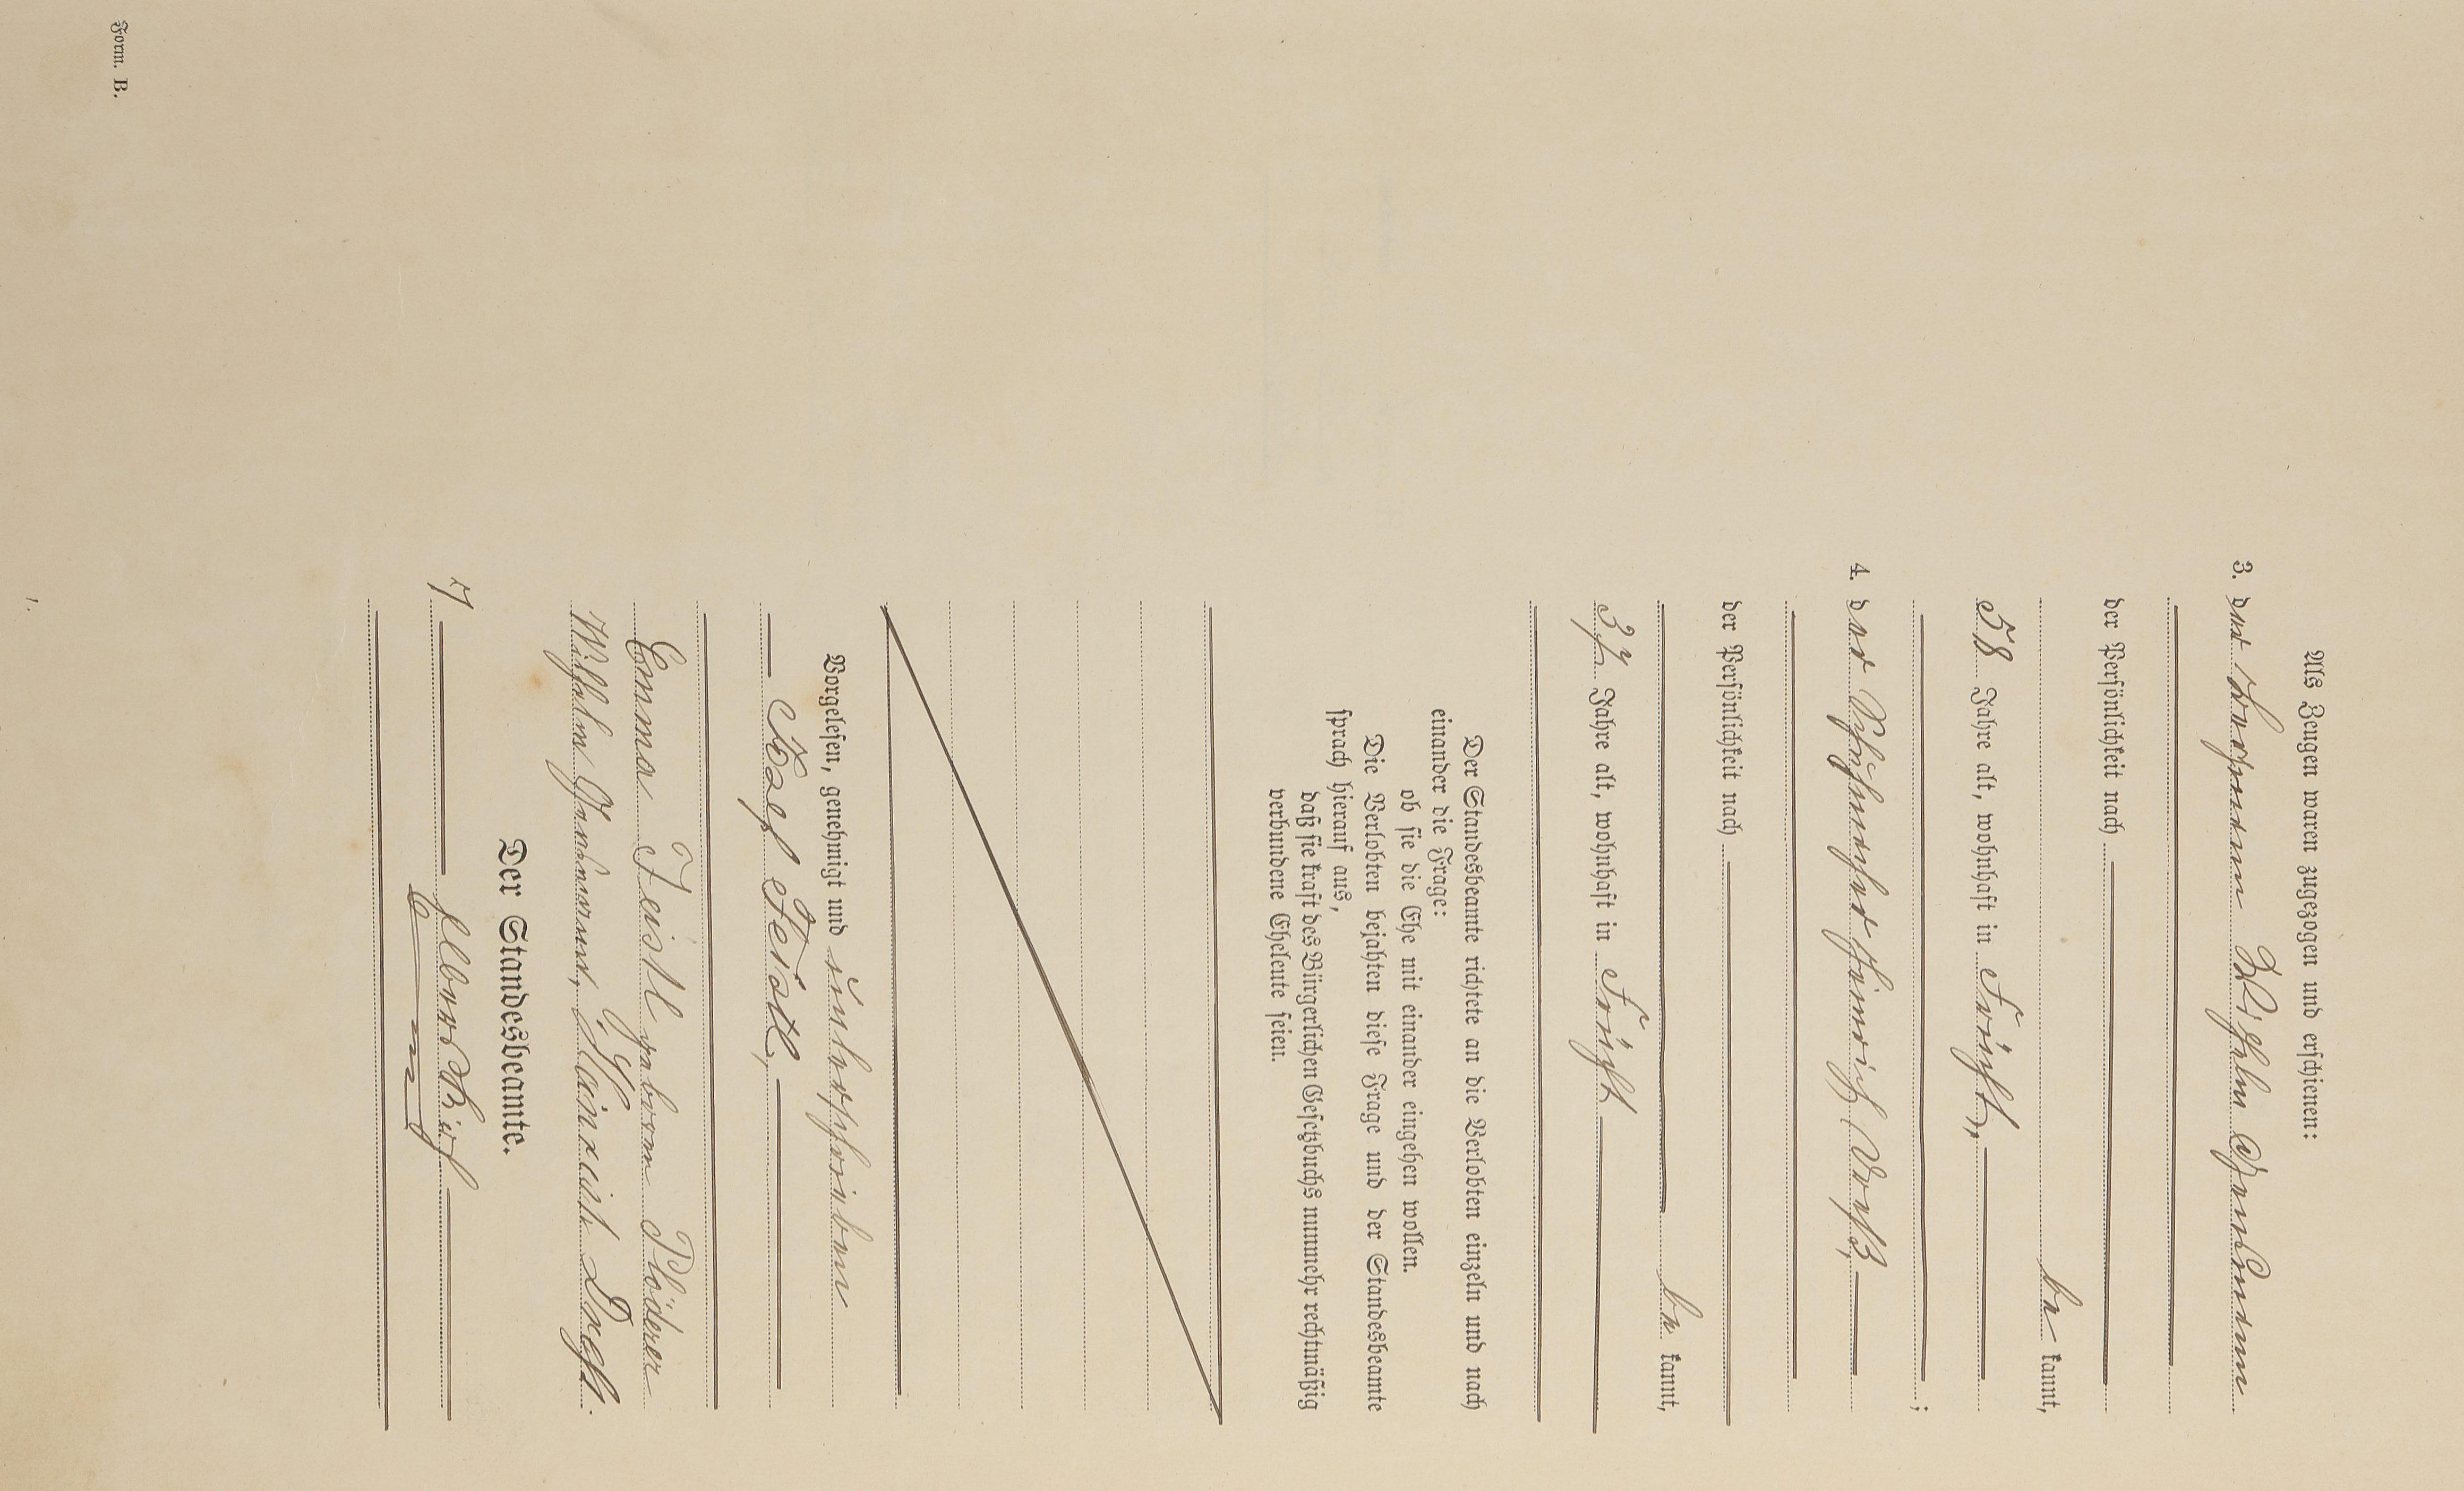 Als Zeugen waren zugezogen und erschienen:
3. der Wilhelm
der Persönlichkeit nach
be kannt,
58 Jahre alt, wohnhaft in Frücht,
;
4. der Schuhmacher Heinrich
der Persönlichkeit nach
be kannt,
37 Jahre alt, wohnhaft in Frücht
Der Standesbeamte richtete an die Verlobten einzeln und nach
einander die Frage:
ob sie die Ehe mit einander eingehen wollen.
Die Verlobten bejahten diese Frage und der Standesbeamte
sprach hierauf aus,
daß sie kraft des Bürgerlichen Gesetzbuchs nunmehr rechtmäßig
verbundene Eheleute seien.
Vorgelesen, genehmigt und unterschrieben
Josef Feistl,
Emma Feistl geborene Plöderer
Wilhelm
Der Standesbeamte.
Form. B.
1.